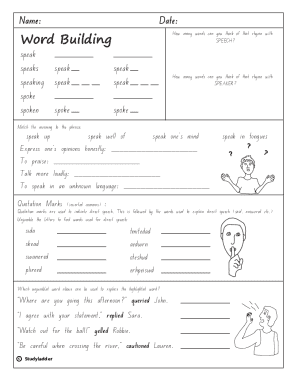 Name: Date:
Word Building
speak
speaks speak__ speak__
speaking speak__ __ __ speak__ __ __
spoke spoke__
spoken spoke__ spoke__
How many words can you think of that rhyme with
SPEECH?
How many words can you think of that rhyme with
SPEAKER?
Match the meaning to the phrase.
speak up speak well of speak one's mind speak in tongues
Express one's opinions honestly:
To praise:
Talk more loudly:
To speak in an unknown language:
? ? ?
Quotation Marks (inverted commas)
Quotation marks are used to indicate direct speech. This is followed by the words used to explain direct speech
Unjumble the letters to find words used for direct speech.
sida
skead
summered
plieed
Which unjumbled word above can be used to replace the highlighted word?
"Where are you going this afternoon?" queried John.
"I agree with your statement," replied Sara.
"Watch out for the ball!" yelled Robbie.
"Be careful when crossing the river," cautioned Lauren.
© Studyladder